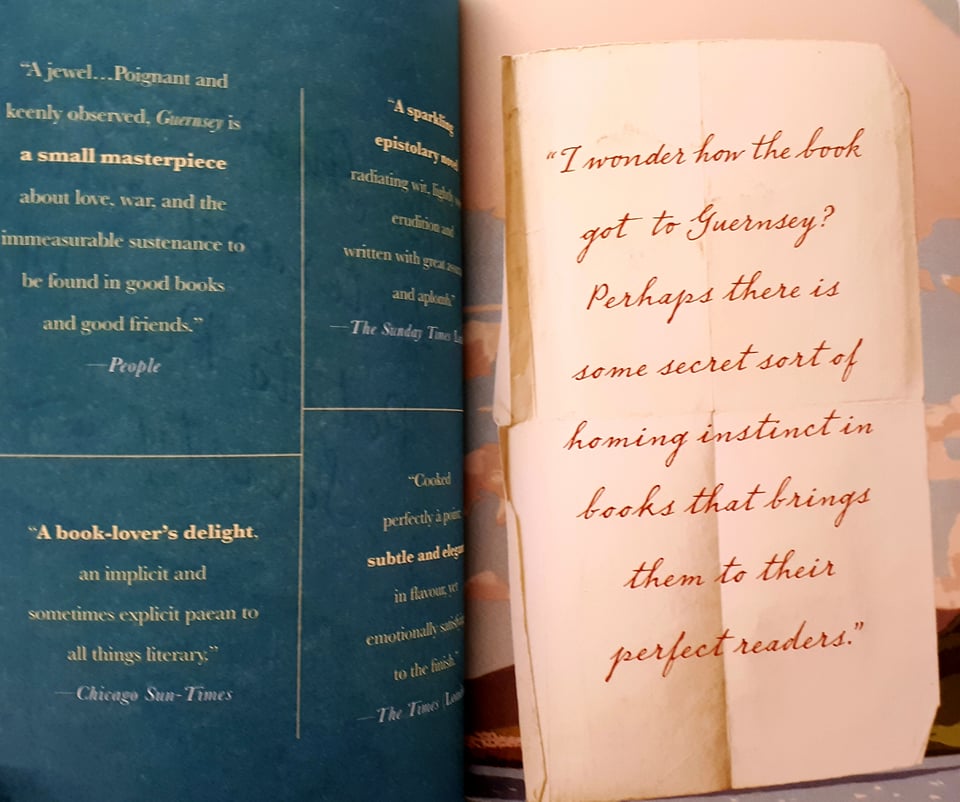 “A jewel…Poignant and
keenly observed, Guernsey is
a small masterpiece
about love, war, and the
immeasurable sustenance to
be found in good books
and good friends.”
—People
“A book-lover’s delight,
an implicit and
sometimes explicit paean to
all things literary.”
—Chicago Sun-Times
“A sparkling
epistolary novel
radiating wit, lightly
erudition and
written with great
and aplomb.”
—The Sunday Times
“Cooked
perfectly à point,
subtle and
in flavour, yet
emotionally
to the finish.”
—The Times
“I wonder how the book
got to Guernsey?
Perhaps there is
some secret sort of
homing instinct in
books that brings
them to their
perfect readers.”